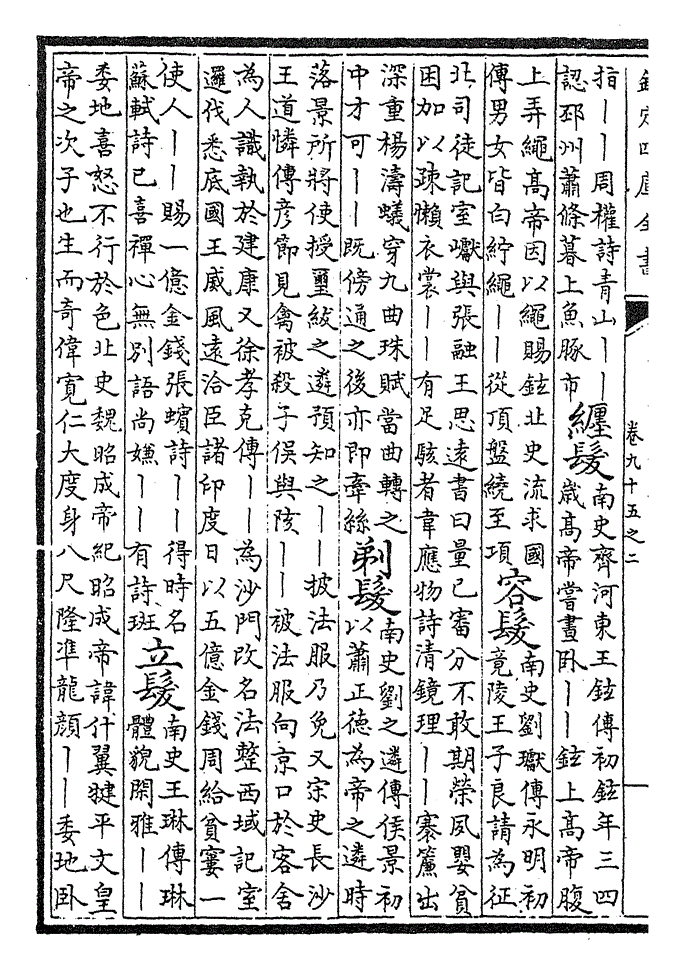 欽定四庫全書 卷九十五之二
指丨丨周權詩青山丨丨
認邳州蕭條暮上魚豚市
纏髮
南史齊河東王鉉傳初鉉年三四
歲高帝嘗晝卧丨丨鉉上高帝腹
上弄繩高帝因以繩賜鉉北史流求國
傳男女皆白紵繩丨丨從頂盤繞至項
容髮
南史劉瓛傳永明初
竟陵王子良請為征
北司徒記室瓛與張融王思遠書曰量已審分不敢期榮夙嬰貧
困加以疎懶衣裳丨丨有足駭者韋應物詩清鏡理丨丨褰簾出
深重楊濤蟻穿九曲珠賦當曲轉之
中才可丨丨既傍通之後亦即牽絲
剃髮
南史劉之遴傳侯景初
以蕭正德為帝之遴時
落景所將使授璽紱之遴預知之丨丨披法服乃免又宗史長沙
王道憐傳彦節見禽被殺子俁與陔丨丨被法服向京口於客舍
為人識執於建康又徐孝克傳丨丨為沙門改名法整西域記室
邏伐悉底國王威風遠洽臣諸印度日以五億金錢周給貧窶一
使人丨丨賜一億金錢張蠙詩丨丨得時名
蘇軾詩已喜禪心無別語尚嫌丨丨有詩斑
立髮
南史王琳傳琳
體貌閑雅丨丨
委地喜怒不行於色北史魏昭成帝紀昭成帝諱什翼犍平文皇
帝之次子也生而奇偉寛仁大度身八尺隆準龍顔丨丨委地卧